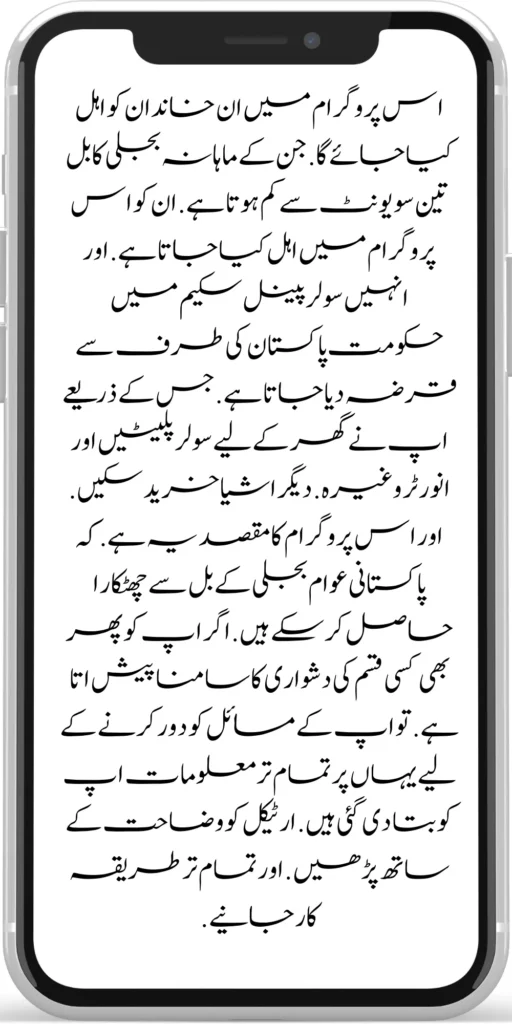 اس پروگرام میں ان خاندان کو اہل
کیا جائے گا. جن کے ماہانہ بجلی کا بل
تین سو یونٹ سے کم ہوتا ہے. ان کو اس
پروگرام میں اہل کیا جاتا ہے. اور
انہیں سولر پینل سکیم میں
حکومت پاکستان کی طرف سے
قرضہ دیا جاتا ہے. جس کے ذریعے
اپ نے گھر کے لیے سولر پلیٹیں اور
انورٹر وغیرہ. دیگر اشیا خرید سکیں.
اور اس پروگرام کا مقصد یہ ہے. کہ
پاکستانی عوام بجلی کے بل سے چھٹکارا
حاصل کر سکے ہیں. اگر اپ کو پھر
بھی کسی قسم کی دشواری کا سامنا پیش اتا
ہے. تو اپ کے مسائل کو دور کرنے کے
لیے یہاں پر تمام تر معلومات اپ
کو بتا دی گئی ہیں. ارٹیکل کو وضاحت کے
ساتھ پڑھیں. اور تمام تر طریقہ
کار جانیے.